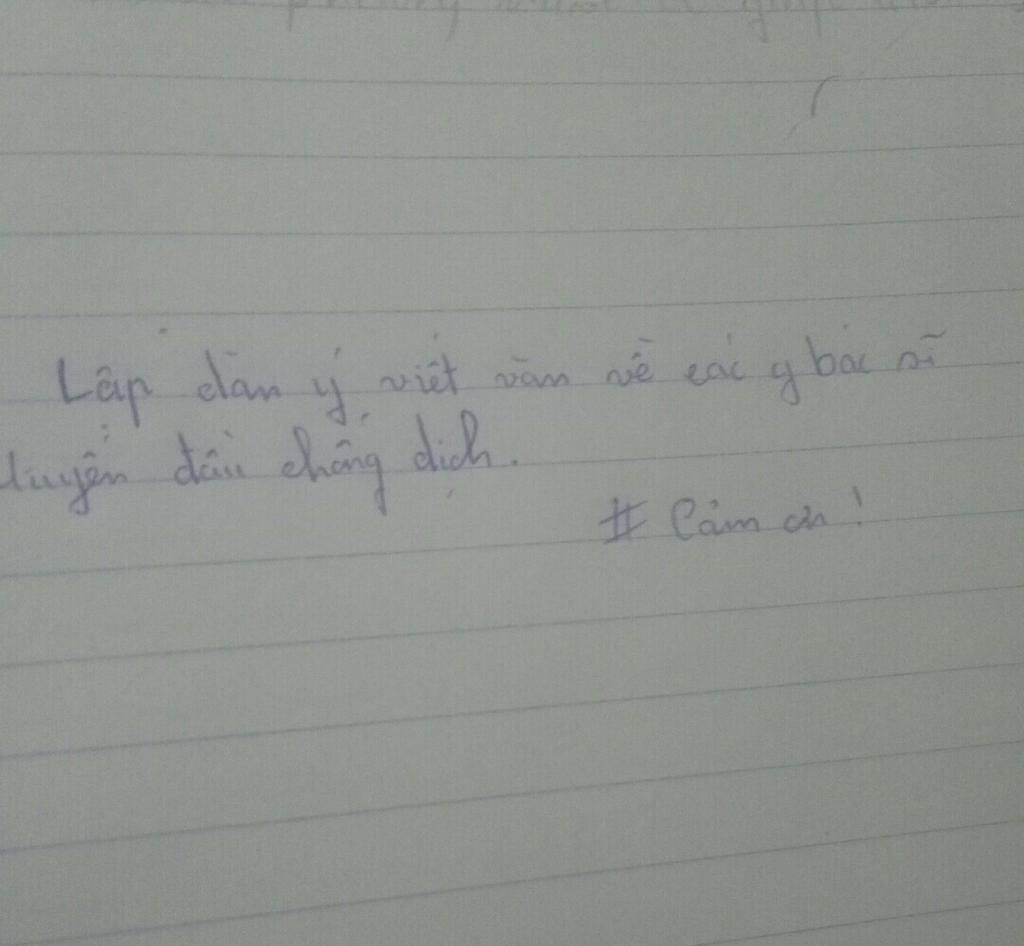 Lập dàn ý viết văn về các y bác sĩ
tuyến đầu chống dịch.
# Cảm ơn!